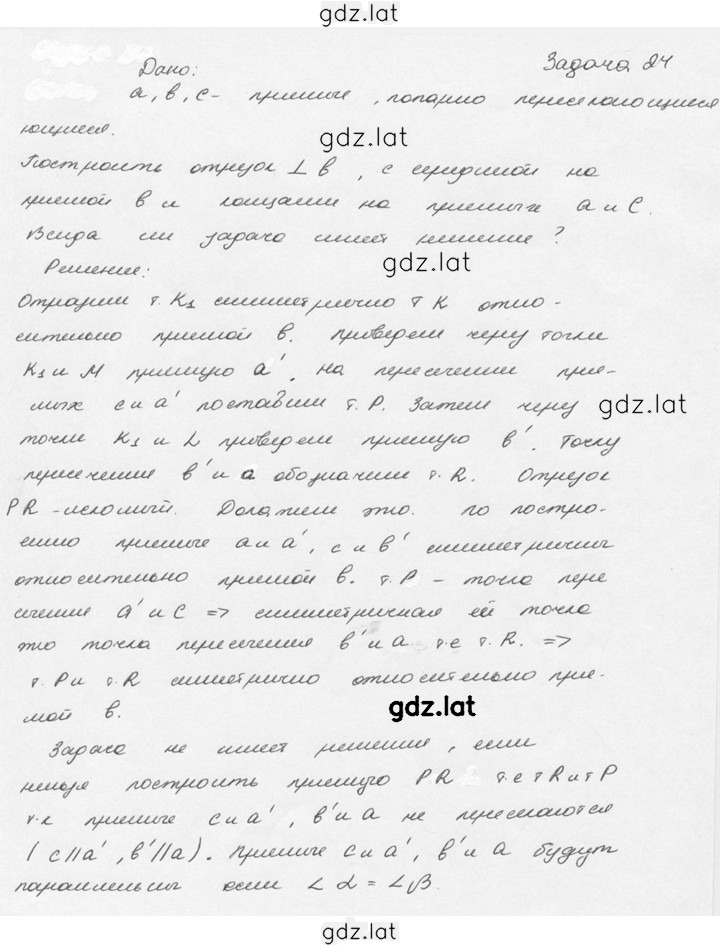 gdz.lat
Задача 24
Дано:
а, в, с - прямые, попарно пересекающиеся
ющиеся.
gdz.lat
Построить отрезок ⊥ в, с серединой на
прямой в и концами на прямых а и С.
Всегда ли задача имеет решение?
gdz.lat
Решение:
Отразим т. K₁ симметрично т K отно-
сительно прямой в. Проведем через точки
K₁ и М прямую a'. На пересечении пря-
мых с и a' поставим т. Р. Затем через
gdz.lat
точки K₁ и L проведем прямую в'. Точку
пересечения в' и а обозначим т. R. Отрезок
PR - искомый. Докажем это. по постро-
ению прямые а и a', с и в' симметричны
относительно прямой в. т. Р - точка пере
сечения a' и с => симметричная ей точка
это точка пересечения в' и а т.е т. R. =>
т. Р и т. R симметрично относительно пря-
мой в.
gdz.lat
Задача не имеет решения, если
нельзя построить прямую PR т.е т R и т P
т.к прямые с и a', в' и а не пересекаются
(с || a', в' || а). Прямые с и a', в' и а будут
параллельны если ∠α = ∠β.
gdz.lat